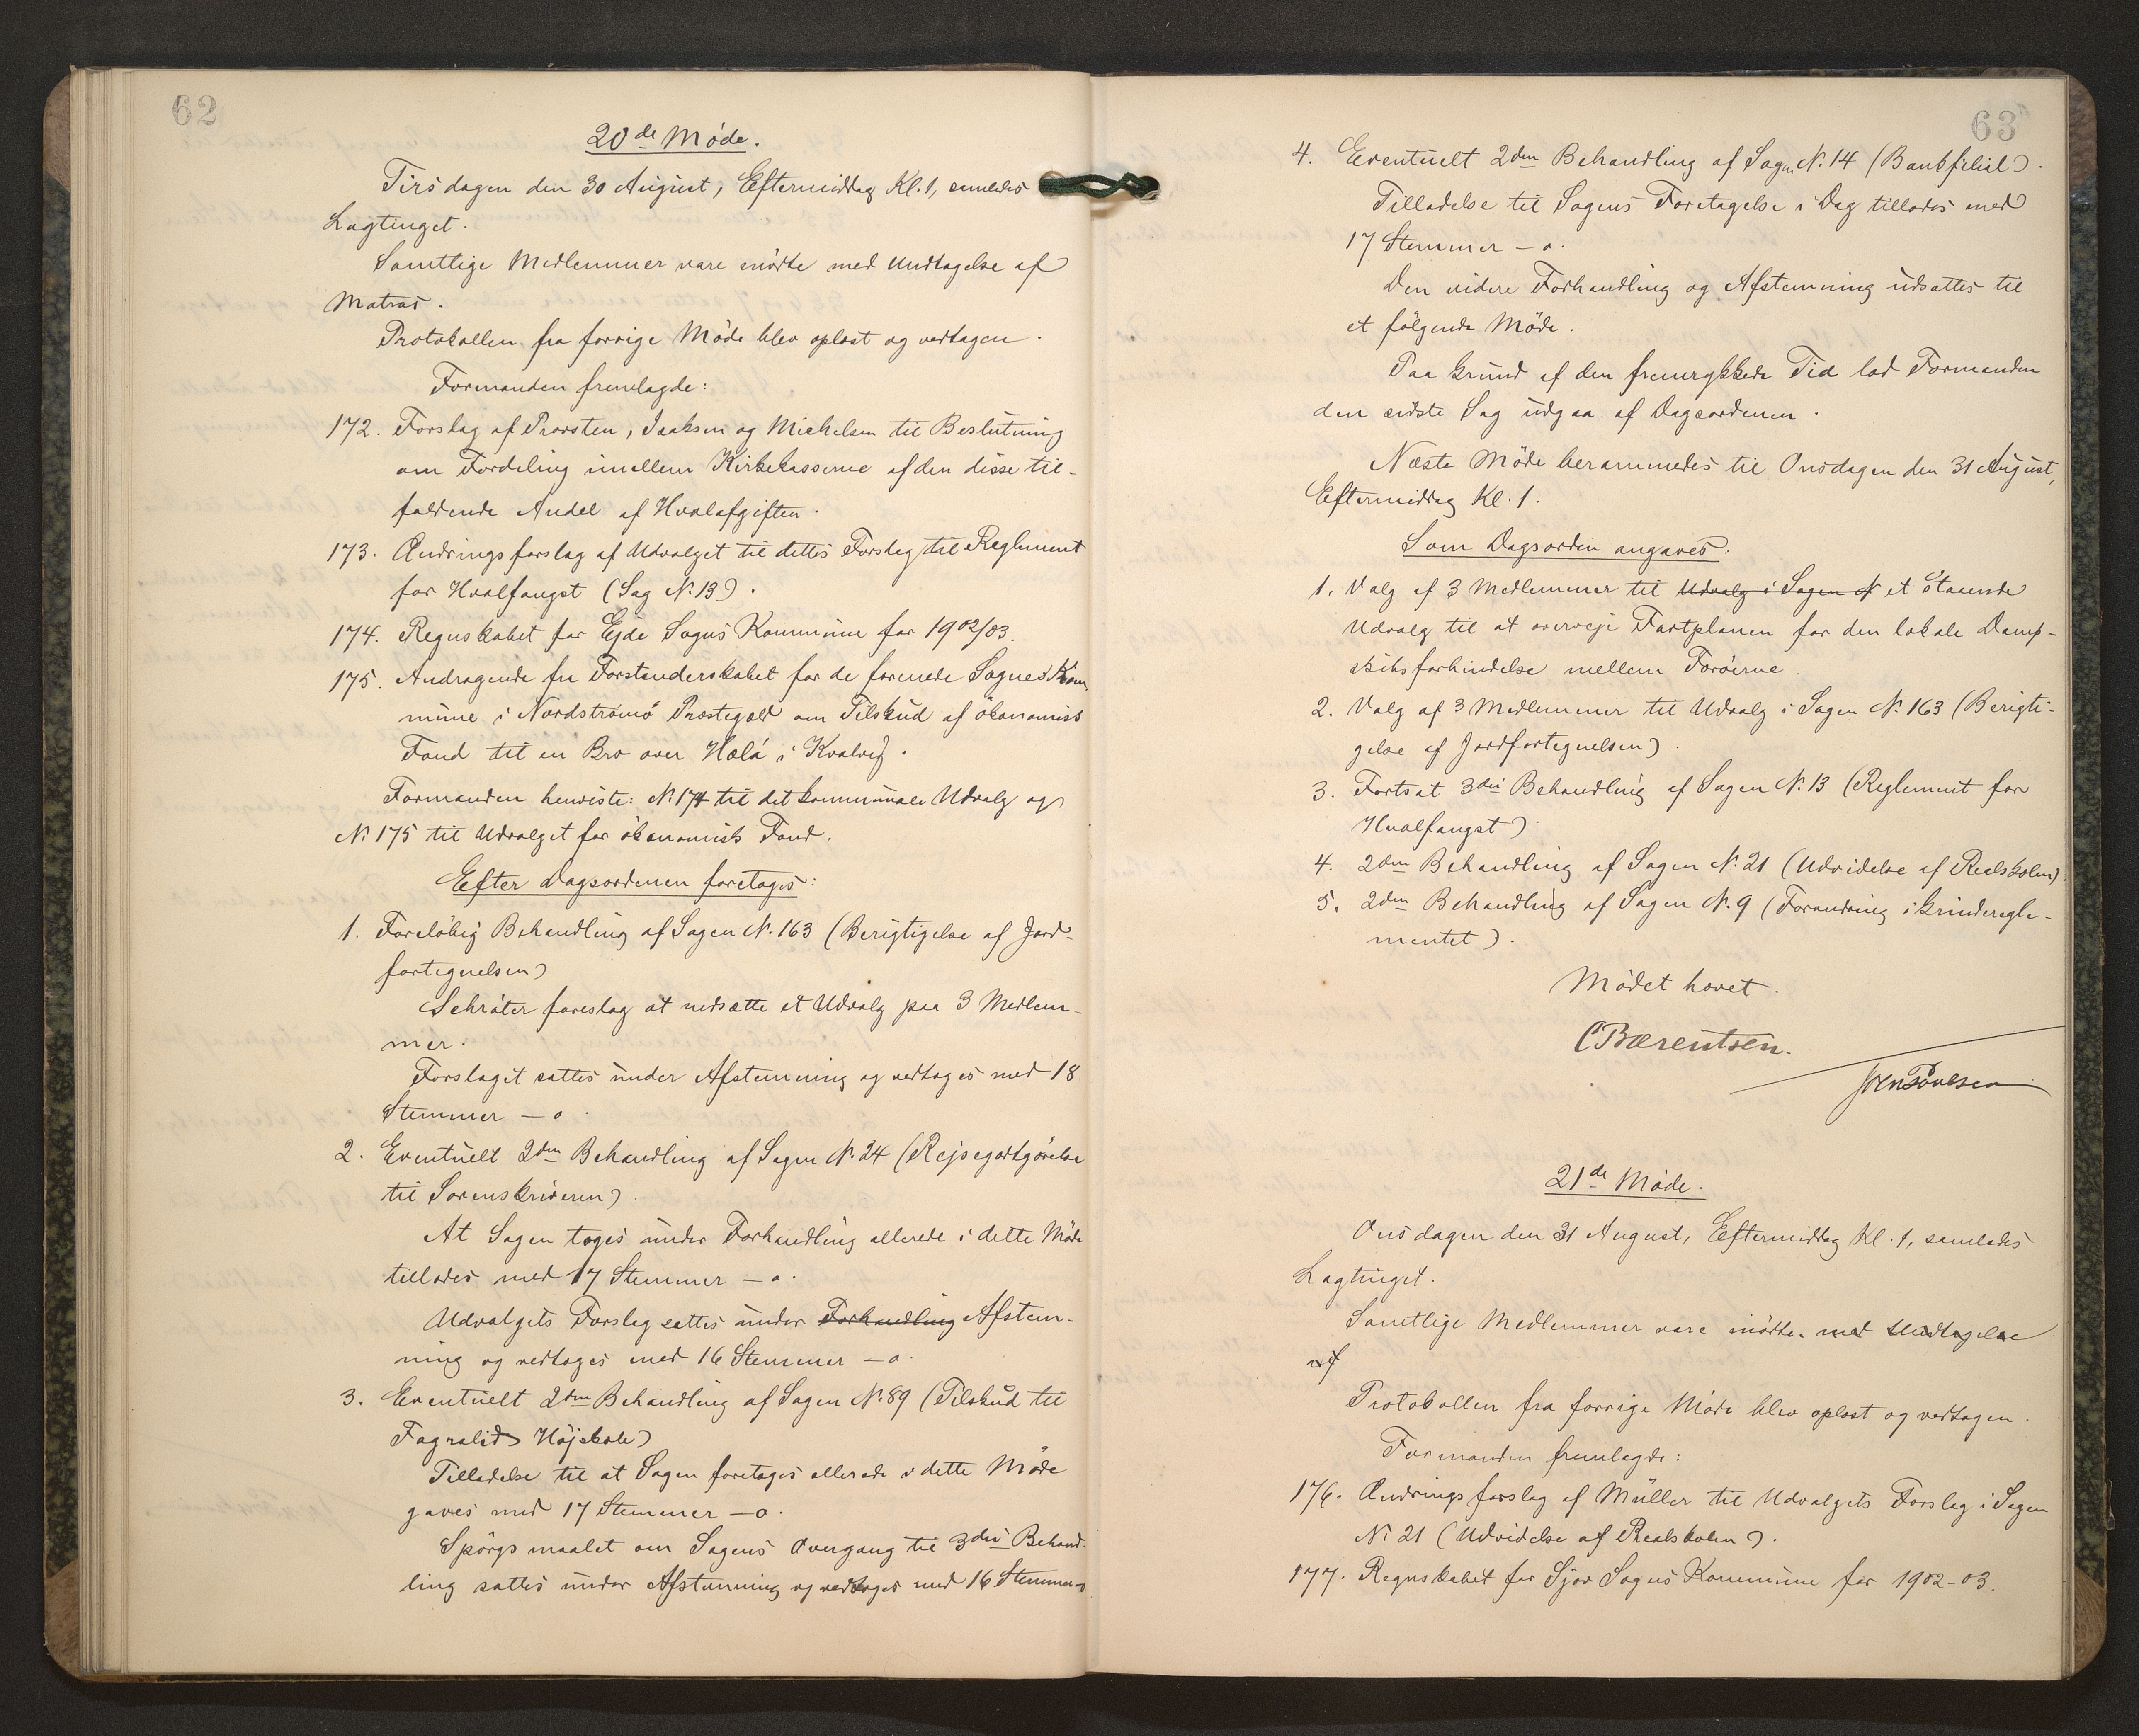 62
20de Møde.
Tirsdagen den 30 August, Eftermiddag Kl. 1, samledes
Lagtinget.
Samtlige Medlemmer vare mødte med Undtagelse af
Matras.
Protokollen fra forrige Møde blev oplæst og vedtagen.
Formanden fremlagde:
172. Forslag af Provsten, Isaksen og Michelsen til Beslutning
om Fordeling imellem Kirkekasserne af den disse til-
faldende Andel af Hvalafgiften.
173. Ændringsforslag af Udvalget til dettes Forslag til Reglement
for Hvalfangst (Sag N. 13).
174. Regnskabet for Ejde Sogns Kommune for 1902/03.
175. Andragende fra Forstanderskabet for de forenede Sognes Kom-
mune i Nordstrømø Præstegæld om Tilskud af økonomisk
Fond til en Bro over Hælá i Kvalvig.
Formanden henviste: N. 174 til det kommunale Udvalg og
N. 175 til Udvalget for økonomisk Fond.
Efter Dagsordenen foretoges:
1. Foreløbig Behandling af Sagen N. 163 (Berigtigelse af Jord-
fortegnelsen)
Schrøter foreslog at nedsætte et Udvalg paa 3 Medlem-
mer.
Forslaget sattes under Afstemning og vedtoges med 18
Stemmer – 0.
2. Eventuelt 2den Behandling af Sagen N. 24 (Rejsegodtgørelse
til Sorenskriveren).
At Sagen toges under Forhandling allerede i dette Møde
tillodes med 17 Stemmer – 0.
Udvalgets Forslag sattes under Forhandling Afstem-
ning og vedtoges med 16 Stemmer – 0.
3. Eventuelt 2den Behandling af Sagen N. 89 (Tilskud til
Fagralid Højskole)
Tilladelse til at Sagen foretoges allerede i dette Møde
gaves med 17 Stemmer – 0.
Spørgsmaalet om Sagens Overgang til 3die Behand-
ling sattes under Afstemning og vedtoges med 16 Stemmer – 0
63
4. Eventuelt 2den Behandling af Sagen N. 14 (Bankfilial).
Tilladelse til Sagens Foretagelse i Dag tillodes med
17 Stemmer – 0.
Den videre Forhandling og Afstemning udsattes til
et følgende Møde.
Paa Grund af den fremrykkede Tid lod Formanden
den sidste Sag udgaa af Dagsordenen.
Næste Møde berammedes til Onsdagen den 31 August,
Eftermiddag Kl. 1.
Som Dagsorden angaves:
1. Valg af 3 Medlemmer til Udvalg i Sagen N et staaende
Udvalg til at overveje Fartplanen for den lokale Damp-
skibsforbindelse mellem Færøerne.
2. Valg af 3 Medlemmer til Udvalg i Sagen N. 163 (Berigti-
gelse af Jordfortegnelsen).
3. Fortsat 3die Behandling af Sagen N. 13 (Reglement for
Hvalfangst)
4. 2den Behandling af Sagen N. 21 (Udvidelse af Realskolen).
5. 2den Behandling af Sagen N. 9 (Forandring i Grinderegle-
mentet).
Mødet hævet.
C Bærentsen.
21de Møde.
Onsdagen den 31 August, Eftermiddag Kl. 1, samledes
Lagtinget.
Samtlige Medlemmer vare mødte. med Undtagelse
af
Protokollen fra forrige Møde blev oplæst og vedtagen.
Formanden fremlagde:
176. Ændringsforslag af Müller til Udvalgets Forslag i Sagen
N. 21 (Udvidelse af Realskolen).
177. Regnskabet for Sjov Sogns Kommune for 1902-03.